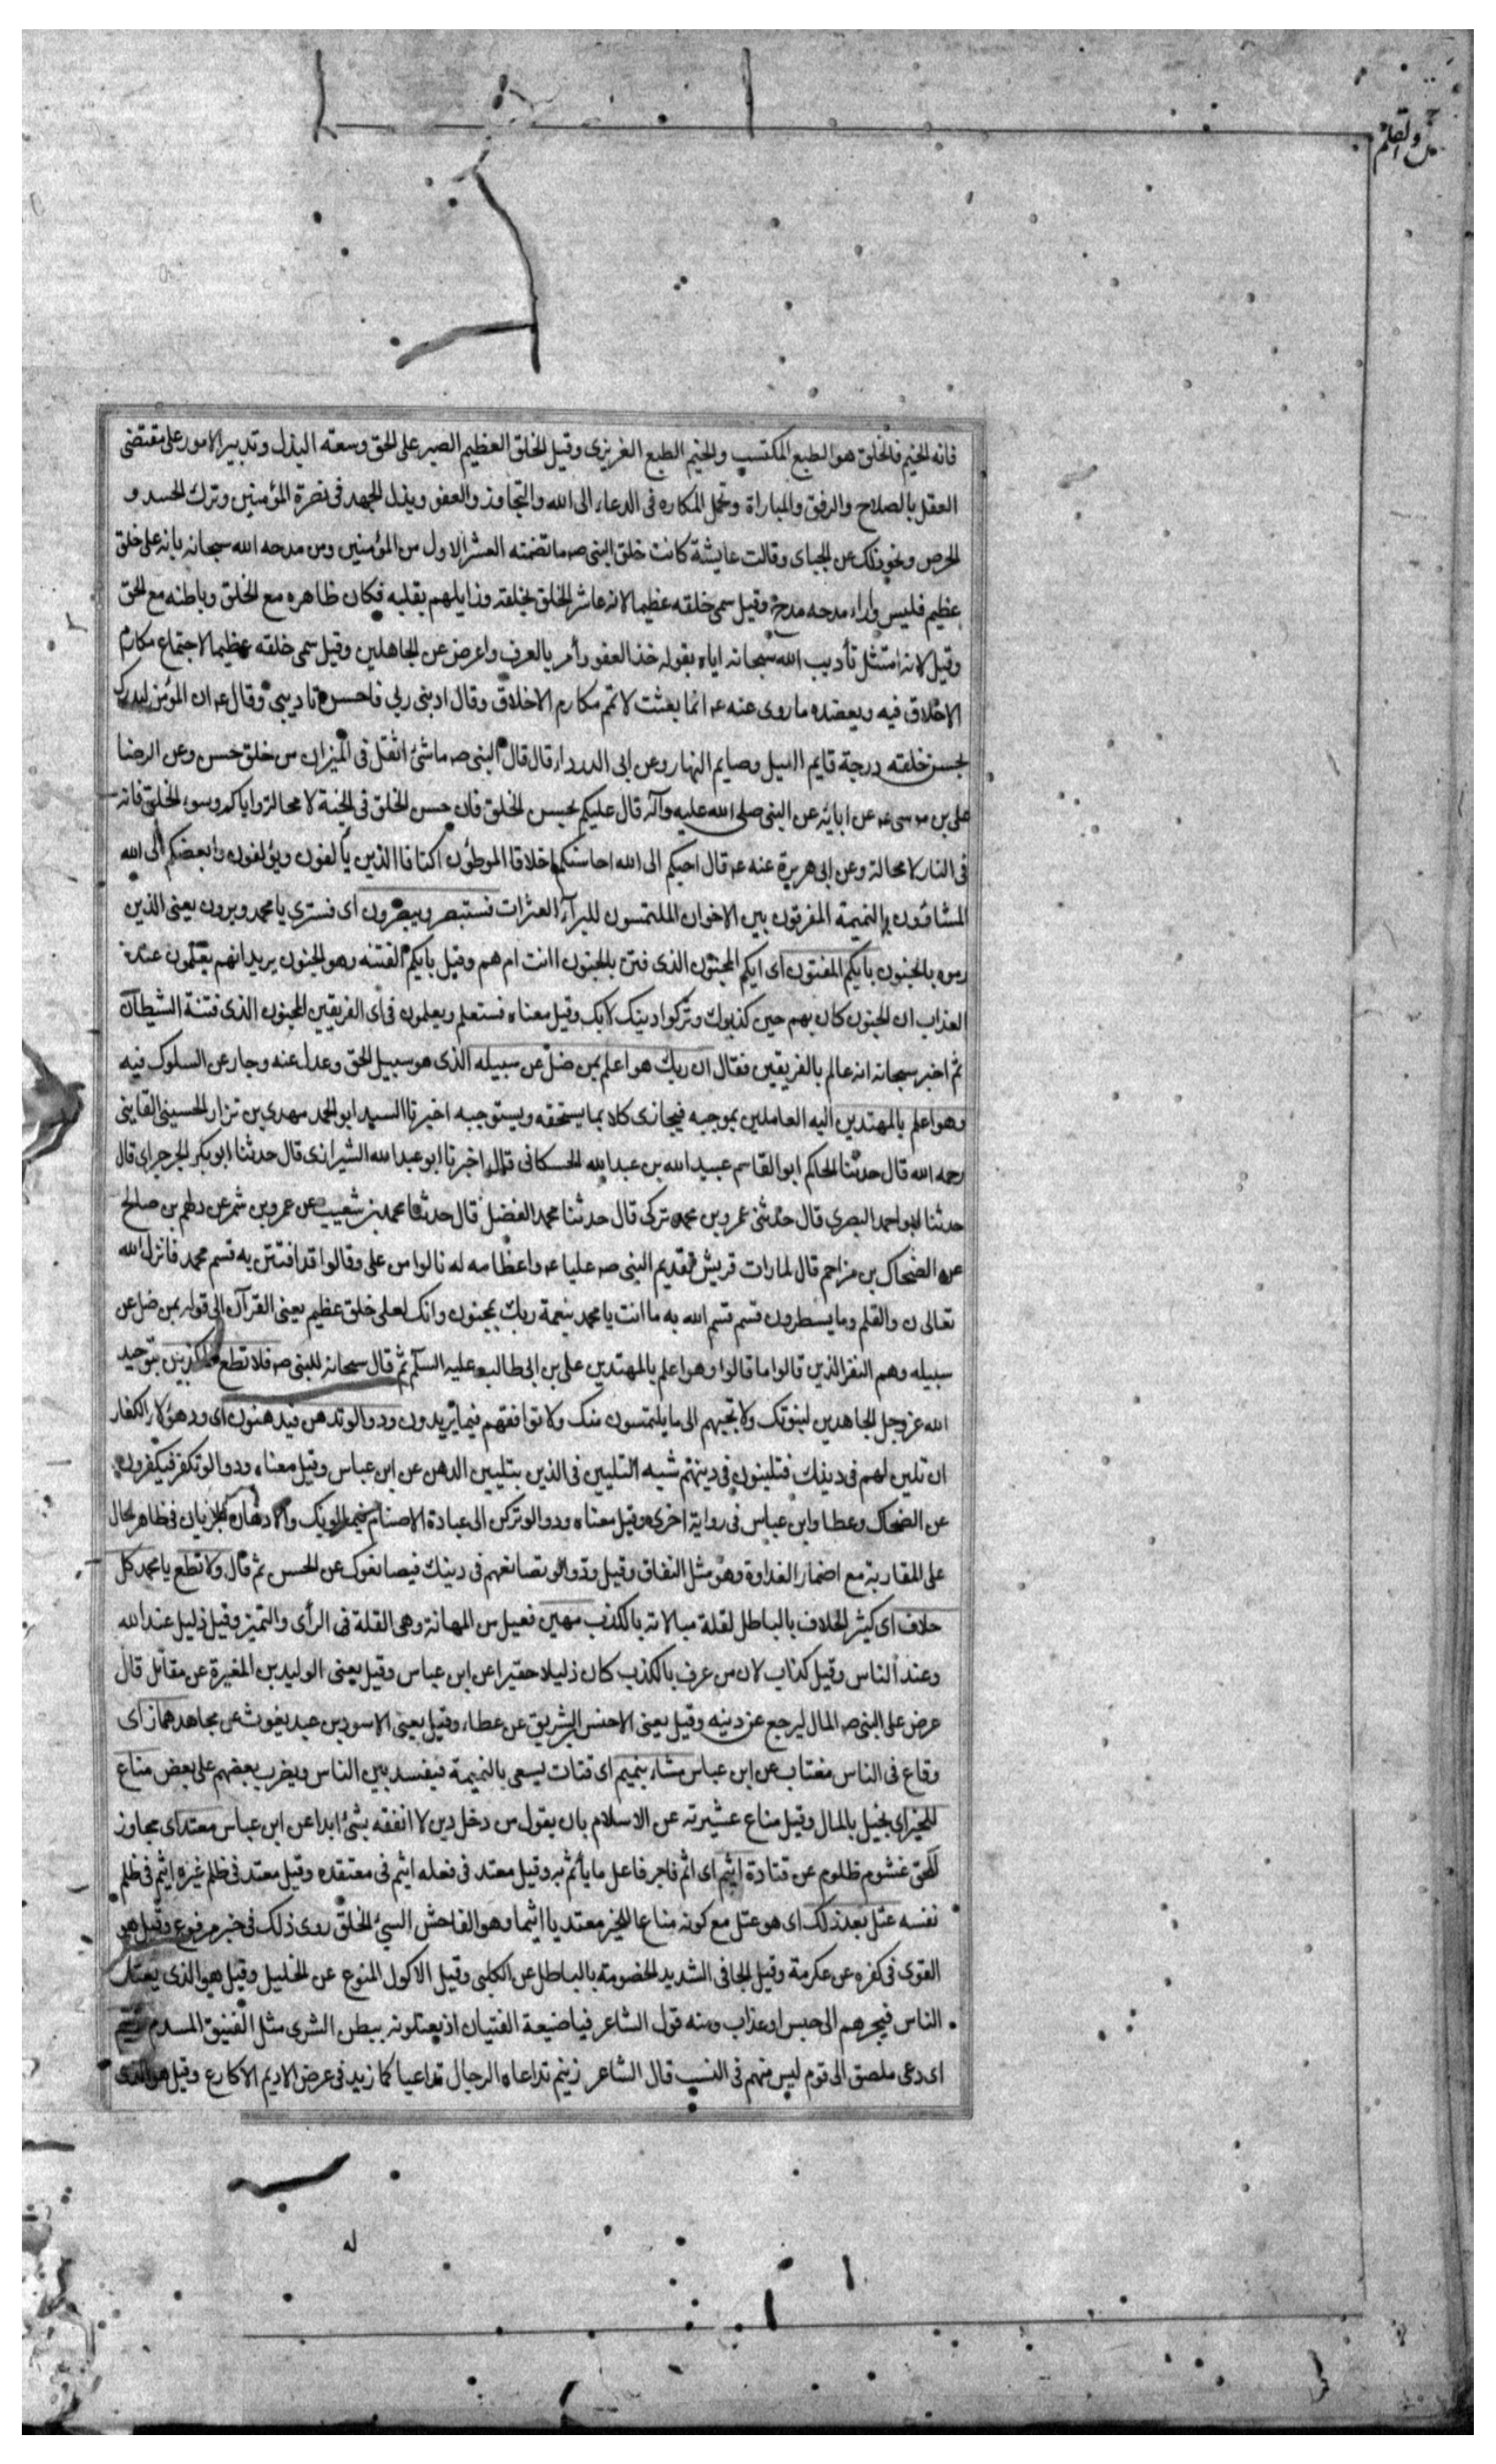 ن والقلم
فانه الخيم فالخلق هو الطبع المكتسب والخيم الطبع الغريزى وقيل الخلق العظيم الصبر على الحق وسعته البذل وتدبير الامور على مقتضى
العقل بالصلاح والرفق والمباراة وتحمل المكاره فى الدعاء الى الله والتجاوز والعفو وبذل الجهد فى نصرة المؤمنين وترك الحسد و
الحرص ونحو ذلك عن الجباى وقالت عايشة كانت خلق النبى صـ ما تضمنته العشر الاول من المؤمنين ومن مدحه الله سبحانه بانه على خلق
عظيم فليس وراء مدحه مدح وقيل سمى خلقه عظيما لانه عاشر الخلق بخلقه وزايلهم بقلبه فكان ظاهره مع الخلق وباطنه مع الحق
وقيل لانه امتثل تأديب الله سبحانه اياه بقوله خذ العفو وأمر بالعرف واعرض عن الجاهلين وقيل سمى خلقه عظيما لاجتماع مكارم
الاخلاق فيه ويعضده ما روى عنه عـ انما بعثت لاتمم مكارم الاخلاق وقال ادبنى ربى فاحسن تاديبى وقال عـ ان المؤمن ليدرك
بحسن خلقه درجة قايم الليل وصايم النهار وعن ابى الدرداء قال قال النبى صـ ما شئ اثقل فى الميزان من خلق حسن وعن الرضا
على بن موسى عـ عن ابائه عن النبى صلى الله عليه وآله قال عليكم بحسن الخلق فان حسن الخلق فى الجنة لا محالة واياكم وسوء الخلق فانه
فى النار لا محالة وعن ابى هريرة عنه عـ قال احبكم الى الله احاسنكم اخلاقا الموطؤن اكنافا الذين يألفون ويؤلفون وابغضكم الى الله
المشاؤن بالنميمة المفرقون بين الاخوان الملتمسون للبرآء العثرات فستبصر ويبصرون اى فسترى يا محمد ويرون يعنى الذين
رموه بالجنون بأيكم المفتون اى ايكم المجنون الذى فتن بالجنون اانت ام هم وقيل بأيكم الفتنه وهو الجنون يريد انهم يعلمون عند
العذاب ان الجنون كان بهم حين كذبوك وتركوا دينك لا بك وقيل معناه فستعلم ويعلمون فى اى الفريقين المجنون الذى فتنه الشيطان
ثم اخبر سبحانه انه عالم بالفريقين فقال ان ربك هو اعلم بمن ضل عن سبيله الذى هو سبيل الحق وعدل عنه وجار عن السلوك فيه
وهو اعلم بالمهتدين اليه العاملين بموجبه فيجازى كلا بما يستحقه ويستوجبه اخبرنا السيد ابو الحمد مهدى بن نزار الحسينى القاينى
رحمه الله قال حدثنا الحاكم ابو القاسم عبيد الله بن عبد الله الحسكانى قال اخبرنا ابو عبد الله الشيرازى قال حدثنا ابو بكر الجرجراى قال
حدثنا ابو احمد البصرى قال حدثنى عمرو بن محمد تركى قال حدثنا محمد الفضل قال حدثنا محمد بن شعيب عن عمرو بن شمر عن دلهم بن صالح
عن الضحاك بن مزاحم قال لما رات قريش تقديم النبى صـ عليا عـ واعظامه له نالوا من على وقالوا قد افتتن به قسم محمد فانزل الله
تعالى ن والقلم وما يسطرون قسم قسم الله به ما انت يا محمد بنعمة ربك بمجنون وانك لعلى خلق عظيم يعنى القرآن الى قوله بمن ضل عن
سبيله وهم النفر الذين قالوا ما قالوا وهو اعلم بالمهتدين على بن ابى طالب عليه السلم ثم قال سبحانه للنبى صـ فلا تطع المكذبين بتوحيد
الله عز وجل الجاهدين لنبوتك ولا تجبهم الى ما يلتمسون منك ولا توافقهم فيما يريدون ودوا لو تدهن فيدهنون اى ود هؤلاء الكفار
ان تلين لهم فى دينك فتلينون فى دينهم شبه التليين فى الذين بتليين الدهن عن ابن عباس وقيل معناه ودوا لو تكفر فيكفرون
عن الضحاك وعطا وابن عباس فى رواية اخرى وقيل معناه ودوا لو تركن الى عبادة الاصنام والادهان الجريان فى ظاهر الحال
على المقاربة مع اضمار العداوة وهو مثل النفاق وقيل ودوا لو تصانعهم فى دينك فيصانعوك عن الحسن ثم قال ولا تطع يا محمد كل
حلاف اى كثير الحلاف بالباطل لقلة مبالاته بالكذب مهين فعيل من المهانة وهى القلة فى الرأى والتميز وقيل ذليل عند الله
وعند الناس وقيل كذاب لان من عرف بالكذب كان ذليلا حقيرا عن ابن عباس وقيل يعنى الوليد بن المغيرة عن مقاتل قال
عرض على النبى صـ المال ليرجع عن دينه وقيل يعنى الاخنس الشريق عن عطاء وقيل يعنى الاسود بن عبد يغوث عن مجاهد هماز اى
وقاع فى الناس مغتاب عن ابن عباس مشاء بنميم اى قتات يسعى بالنميمة فيفسد بين الناس ويضرب بعضهم على بعض مناع
للخير اى بخيل بالمال وقيل مناع عشيرته عن الاسلام بان يقول من دخل دين لا انفقه بشئ ابدا عن ابن عباس معتد اى مجاوز
للحق غشوم ظلوم عن قتادة اثيم اى اثم فاجر فاعل ما يأثم به وقيل معتد فى فعله اثيم فى معتقده وقيل معتد فى ظلم غيره اثيم فى ظلم
نفسه عتل بعد ذلك اى هو عتل مع كونه مناعا للخير معتديا اثيما وهو الفاحش السئ الخلق روى ذلك فى خبر مرفوع وقيل هو
القوى فى كفره عن عكرمة وقيل الجافى الشديد الخصومته بالباطل عن الكلبى وقيل الاكول المنوع عن الخليل وقيل هو الذى يعتل
الناس فيجرهم الى حبس او عذاب ومنه قول الشاعر فيا ضيعة الفتيان اذ يعتلونه ببطن الشرى مثل الفنيق المسدم زنيم
اى دعى ملصق الى قوم ليس منهم فى النسب قال الشاعر زنيم تداعاه الرجال تداعيا كما زيد فى عرض الاديم الاكارع وقيل هو الذى
له